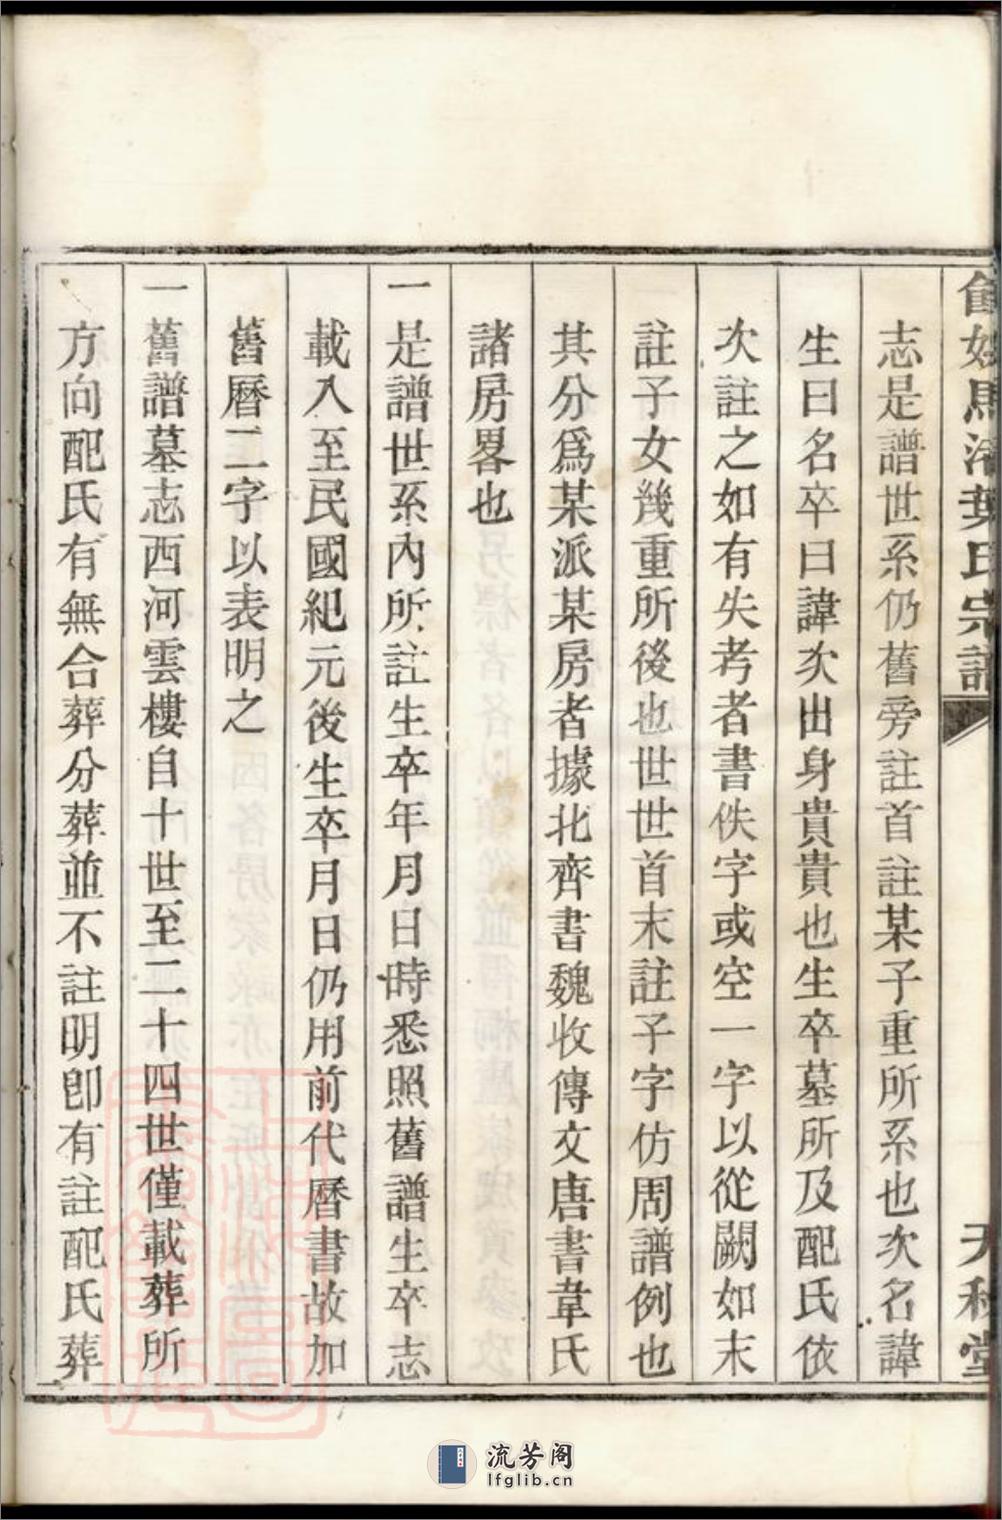 志是譜世系仍舊旁註首註某子重所系也次名諱
生曰名卒曰諱次出身貴貴也生卒墓所及配氏依
次註之如有失考者書佚字或空一字以從闕如末
註子女幾重所後也世世首末註子字仿周譜例也
其分爲某派某房者據北齊書魏收傳文唐書韋氏
諸房畧也
一是譜世系內所註生卒年月日時悉照舊譜生卒志
載入至民國紀元後生卒月日仍用前代曆書故加
舊曆二字以表明之
一舊譜墓志西河雲樓自十世至二十四世僅載葬所
方向配氏有無合葬分葬並不註明卽有註配氏葬
流芳阁
lfglib.cn